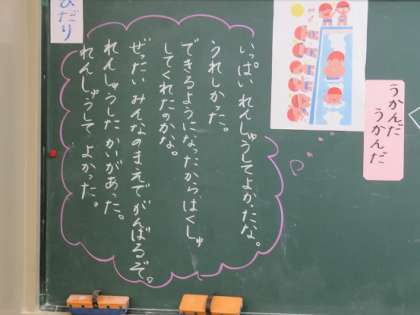 うかんだ
うかんだ
いっぱいれんしゅうしてよかったな。
うれしかった。
できるようになったからはくしゅ
してくれたのかな。
ぜったいみんなのまえでがんばるぞ。
れんしゅうしたかいがあった。
れんしゅうしてよかった。
ひだり